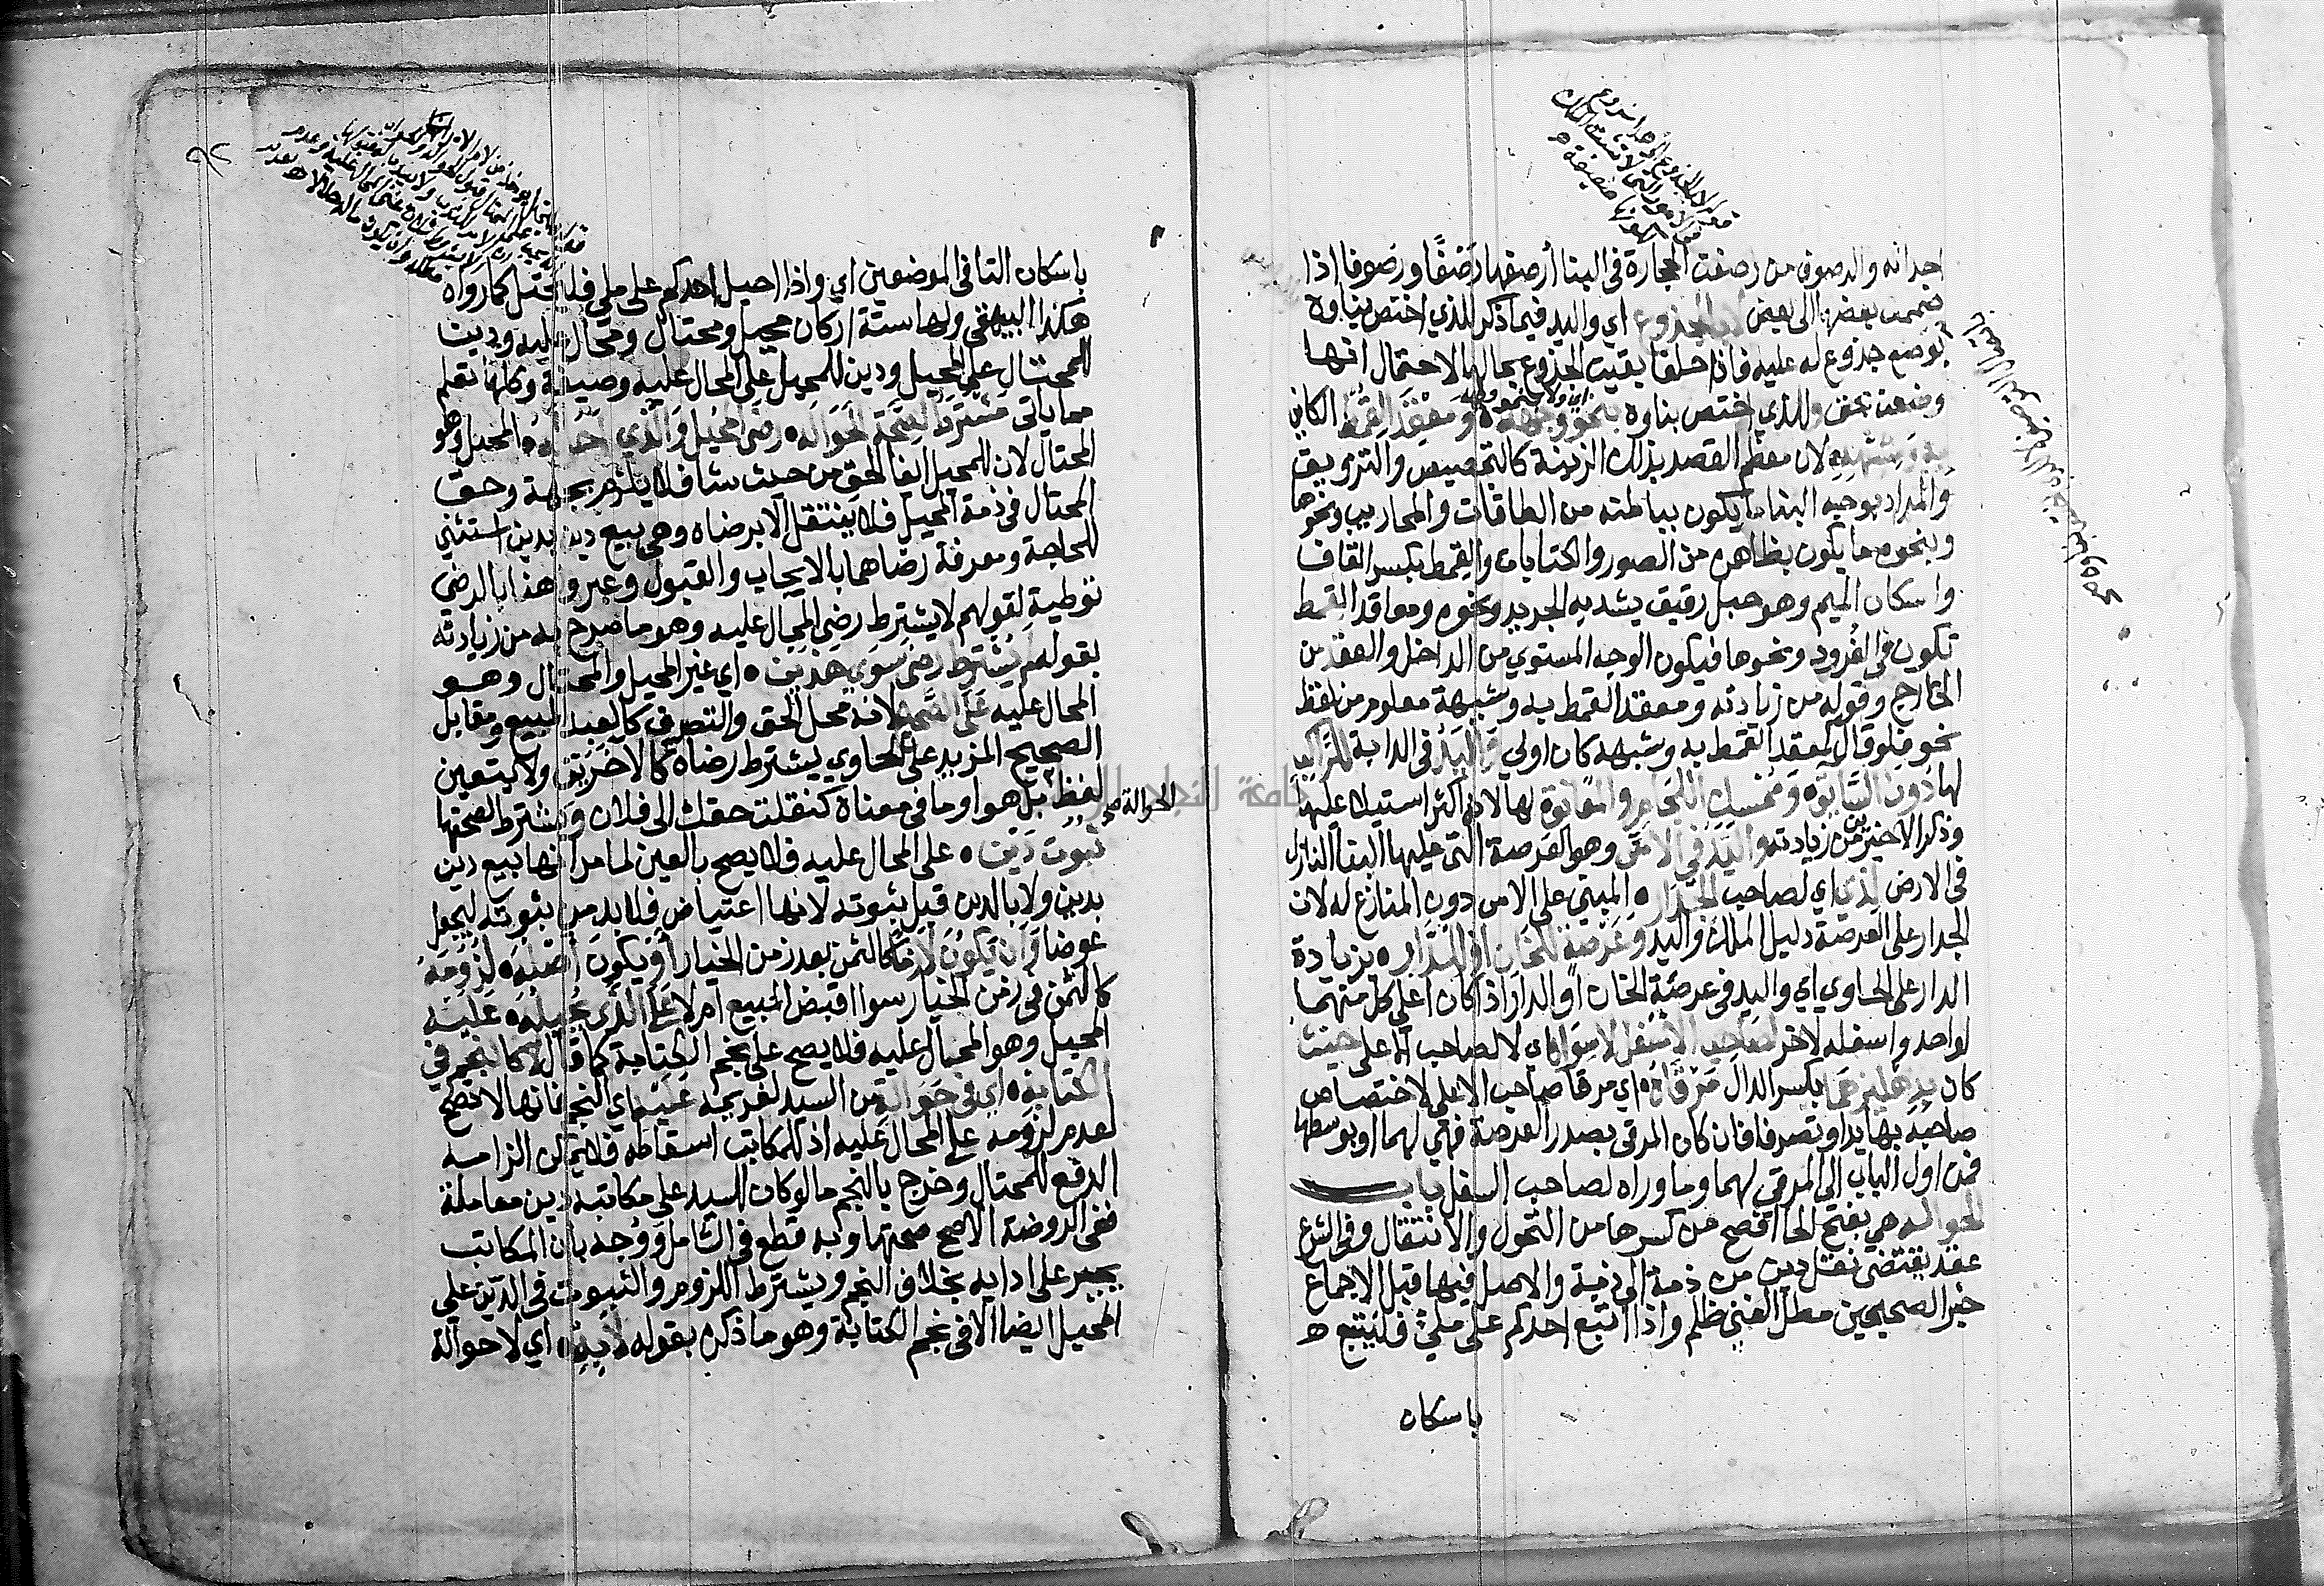 اجدانه والرصوف من رصفت الحجارة في البنا أرصفها رصفًا ورصوفا اذا
ضممت بعضها الى بعض لا الجذوع اي واليد فيما ذكر للذي اختص بناوه
بوضع جذوع له عليه فاذا حلفا بقيت الجذوع بحالها لاحتمال انها
وضعت بحق وللذي اختص بناوه بنحو وجهه ومعقد القمط الكاين
به وشبهه لان معظم القصد بذلك الزينة كالتجصيص والتزويق
والمراد بوجه البنا ما يكون بباطنه من الطاقات والمحاريب ونحوها
وبنحوه ما يكون بظاهره من الصور والكتابات والقمط بكسر القاف
واسكان الميم وهو حبل رقيق يشد به الجريد ونحوه ومعاقد القمط
تكون في الفرود ونحوها فيكون الوجه المستوي من الداخل والعقد من
الخارج وقوله من زيادته ومعقد القمط به وشبهه معلوم من لفظ
نحو فلو قال كمعقد القمط به وشبهه كان اولى واليد في الدابة للراكب
لها دون السايق وممسك اللجام والقايد لها لانه اكثر استيلا عليها
وذكر الاخيرين من زيادته واليد في الاس وهو العرصة التي عليها البنا النازل
في الارض لذي اي لصاحب الجدار المبني على الاس دون المنازع له لان
الجدار على العرصة دليل الملك واليد وعرصة للخان او للدار بزيادة
الدار على الحاوي اي واليد في عرصة الخان او الدار اذا كان اعلى كل منهما
لواحد واسفله لاخر لصاحب الاسفل لا سواه اي لا لصاحب الاعلى حيث
كان بدهليزها بكسر الدال مرقاه اي مرقا صاحب الاعلى لاختصاص
صاحبه بها يدا وتصرفا فان كان المرقى بصدر العرصة فهي لهما او بوسطها
فمن اول الباب الى المرقى لهما وما وراه لصاحب السفل باب
الحواله هي بفتح الحا افصح من كسرها من التحول والانتقال وفي الشرع
عقد يقتضي نقل دين من ذمة الى ذمة والاصل فيها قبل الاجماع
خبر الصحيحين مطل الغني ظلم واذا اتبع احدكم على ملئ فليتبع
باسكان
باسكان التا في الموضعين اي واذا احيل احدكم على ملي فليحتل كما رواه
هكذا البيهقي ولها ستة اركان محيل ومحتال ومحال عليه ودين
للمحتال على المحيل ودين للمحيل على المحال عليه وصيغة وكلها تعلم
مما ياتي مشترط لصحة الحواله رضى المحيل والذي احتاله المحيل وهو
المحتال لان للمحيل ايفا الحق من حيث شا فلا يلزم بجهة وحق
المحتال في ذمة المحيل فلا ينتقل الا برضاه وهي بيع دين بدين استثني
للحاجة ومعرفة رضاهما بالايجاب والقبول وعبروا هنا بالرضى
توطية لقولهم لا يشترط رضى المحال عليه وهو ما صرح به من زيادته
بقوله لم يشترط رضى سوى هذين اي غير المحيل والمحتال وهو
المحال عليه على الصحيح لانه محل الحق والتصرف كالعبد المبيع ومقابل
الصحيح المزيد على الحاوي يشترط رضاه كالاخرين ولا يتعين
لفظ الحوالة بل هو او ما في معناه كنقلت حقك الى فلان ويشترط لصحتها
ثبوت دين على المحال عليه فلا يصح بالعين لما مر انها بيع دين
بدين ولا بالدين قبل ثبوته لانها اعتياض فلا بد من ثبوته ليجعل
عوضا وان يكون لازما كالثمن بعد زمن الخيار او يكون اصله لزومه
كالثمن في زمن الخيار سوا اقبض المبيع ام لا على الذي يحيله عليه
المحيل وهو المحال عليه فلا يصح على نجم الكتابة كما قال لا كالنجم في
الكتابه اي في حوالة من السيد لغريمه عليه اي النجم فانها لا تصح
لعدم لزومه على المحال عليه اذ للمكاتب اسقاطه فلا يمكن الزامه
الدفع للمحتال وخرج بالنجم ما لو كان للسيد على مكاتبه دين معاملة
ففي الروضة الاصح صحتها وبه قطع في الشامل ووجه بان المكاتب
يجبر على ادايه بخلاف النجم ويشترط اللزوم والثبوت في الدين على
المحيل ايضا الا في نجم الكتابة وهو ما ذكره بقوله لا به اي لا حوالة